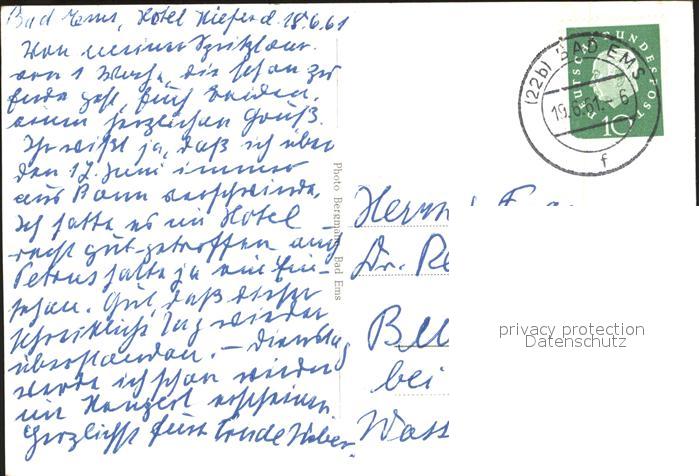 Bad Ems, Hotel Kiefer d. 18.6.61
Von meiner Spritztour
von 1 Woche, die schon zu
Ende geht, Euch beiden
einen herzlichen Gruß.
Ihr wißt ja, daß ich über
den 17. Juni immer
aus Bonn verschwinde.
Ich hatte es im Hotel
recht gut getroffen auch
Petrus hatte ja ein Ein-
sehen. Gut, daß dieser
schreckliche Tag wieder
überstanden. – Dienstag
werde ich schon wieder
im Konzert erscheinen.
Herzlichst Eure Trude
Photo Bergmann, Bad Ems
DEUTSCHE BUNDESPOST
10
(22b) BAD EMS
19.6.61.- 6
f
Herrn
Dr. Re
bei
Wass
privacy protection
Datenschutz